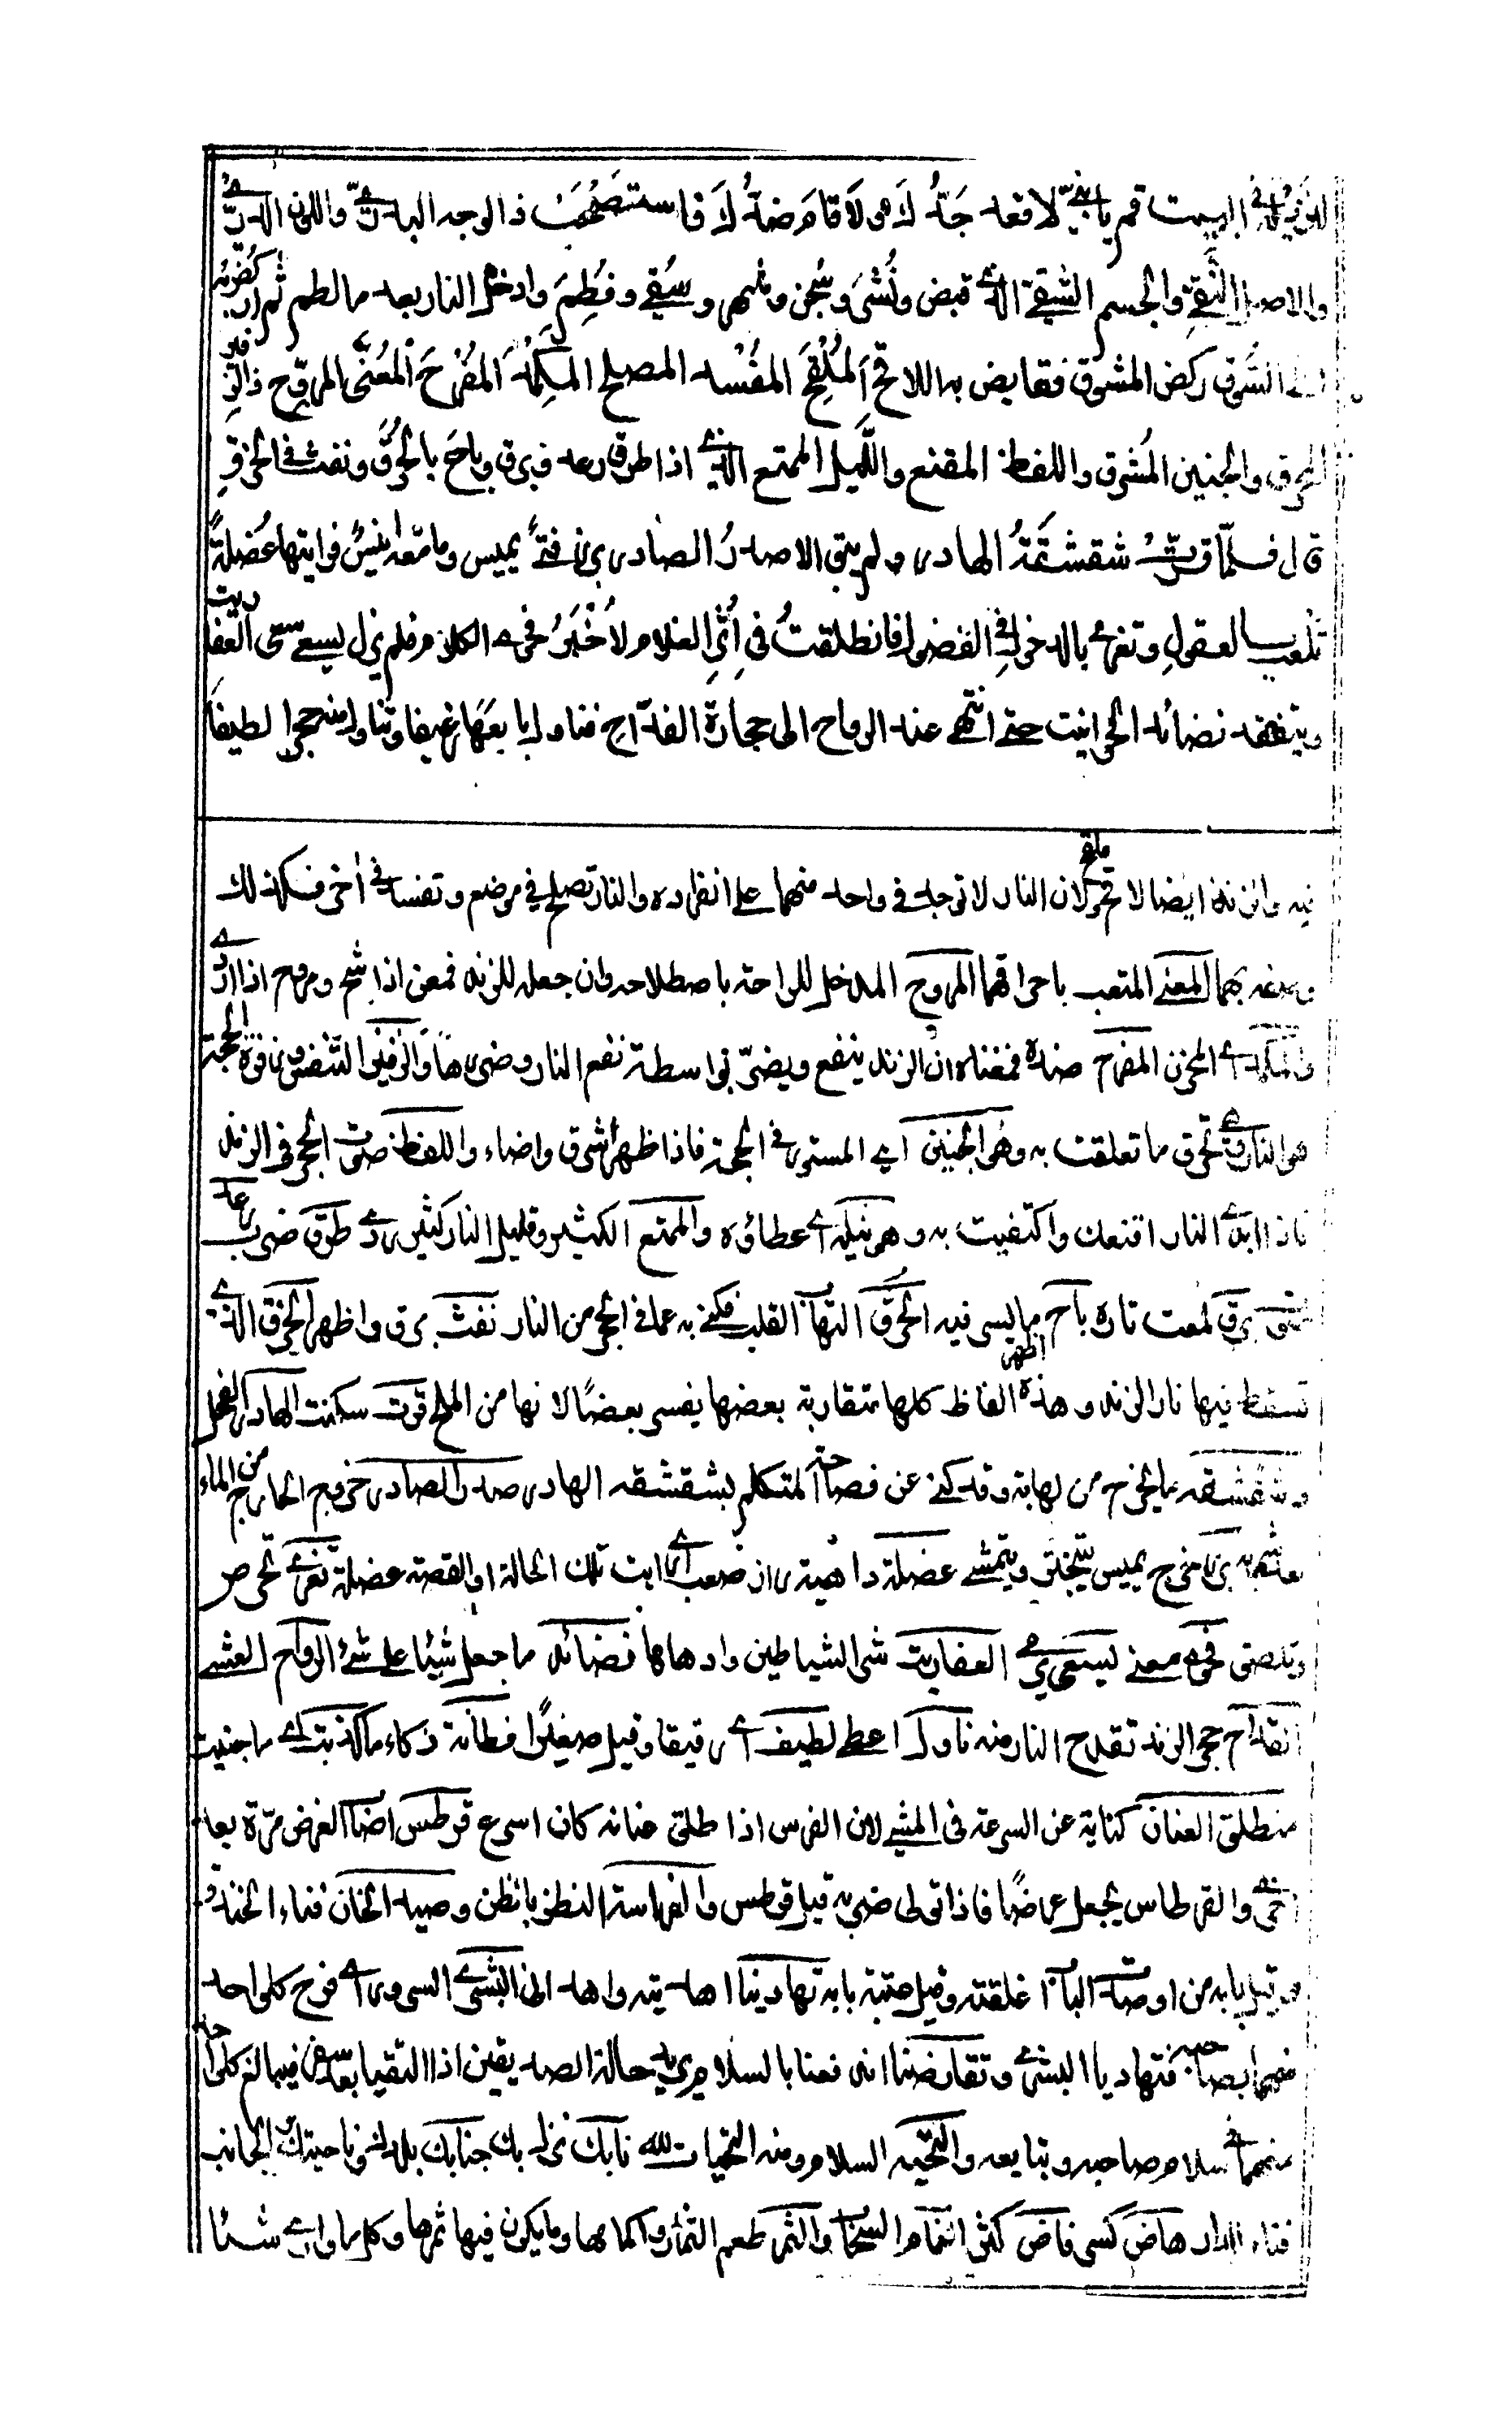 في البيت قم يا بني لا قعد جَدُّكَ ولا قام ضدُّكَ فاستصحب ذا الوجه البدريّ واللون الدريّ
والاصل النقي والجسم الشقي الذي قبض ونُشر وسُجن وشهر وسُقي وفُطِمَ وادخل النار بعد ما لطم ثم اركض
السُّوق ركض المشوق فقايض به اللاقح المُلْقِحَ المُفْسد المصلح المكمد المُفْرِحَ المُعَنّي المروّح ذا الزفير
المحرق والجنين المُشرق واللفظ المقنع والنيل الممتع الذي اذا طرق رعد وبرق وباحَ بالحُرَق ونفث في الخرق
قال فلمّا قرّت شقشقةُ الهادر ولم يبق الا صدرُ الصادر برز فتًى يميس وما معه انيسٌ فرايتها عُضلةً
تلعب بالعقول وتغري بالدخول في الفضول فانطلقتُ في اثر الغلام لاخبر فحوى الكلام فلم يزل يسعى سعي العفاريت
ويتفقد نضائد الحوانيت حتى انتهى عند الرواح الى حجارة القدّاح فناول بايعها رغيفا وتناول منه حجرا لطيفا
فيه والزند ايضا لاقح ملقح لان النار لا توجد في واحد منهما على انفراده والنار تصلح في موضع وتفسد في آخر فكذلك
بهما المعني المتعب باحراقهما المروح المدخل للراحة باصطلاحه وان جعله للزند فمعنى اذا شح وروح اذا اورى
والمكمد اي المحزن المفرح ضده فمعناه ان الزند ينفع ويضرّ بواسطة نفع النار وضرها والزفير التنفس
هو النار تحرق ما تعلقت به وهو الجنين اي المستور في الحجر فاذا ظهر اشرق واضاء واللفظ صوت الحجر في الزند
فاذا ابدى النار اقنعك واكتفيت به وهو نيله اي عطاؤه والممتع الكثير وقليل النار كثير طرق ضرب رعد
صوّت برق لمعت ناره باح اظهر ما يسر فيه الحُرَق التهاب القلب فكنى به عما في الحجر من النار نفث برق واظهر الخرق التي
تسقط فيها نار الزند وهذه الفاظ كلها متقاربة بعضها يفسر بعضًا لانها من الملح قرت سكنت الهادر الفحل
وشقشقه ما يخرج من لهاته وقد كنى عن فصاحة المتكلم بشقشقه الهادر صدر الصادر خروج الخارج من الماء
بعد شربه برز خرج يميس يتبختر ويتمشى عضلة داهية رايت تلك الحالة او القصة عضلة تغري تحرص
وتلصق فحوى معنى يسعى يجري العفاريت شر الشياطين وادهاها نضائد ما جعل شيئا على شئ الرواح العشي
القداح حجر الزند تقدح النار منه ناول اعطى لطيف اي رقيقا وقيل صغيرا فطانة ذكاء ما كذبت اي ما جنيت
منطلق العنان كناية عن السرعة في المشي لان الفرس اذا طلق عنانه كان اسرع قرطس اصاب الغرض مرّة بعد
اخرى والقرطاس يجعل عرضًا فاذا توالى ضربه قيل قرطس والفراسة النظر بالظن وصيد الخان فناء الخندق
وقيل بابه من اوصدت الباب اغلقته وقيل عتبة بابه تهادينا اهديته واهدى الي البشرى السرور اي فرح كل واحد
منهما بصاحبه فتهاديا البشرى وتقارضنا اندفعنا بالسلام يريد حالة الصديقين اذا التقيا
منهما في سلام صاحبه ويتابعه والتحيه السلام ومنه التحيات لله نابك نزل بك جنابك بلدك وناحيتك الجانب
فناء الدار هاض كسر فاض كثر انتمام السحاب والثمر طعم الثمار واكمامها وما يكون فيها ثمرها وكل ما وارى شيئا